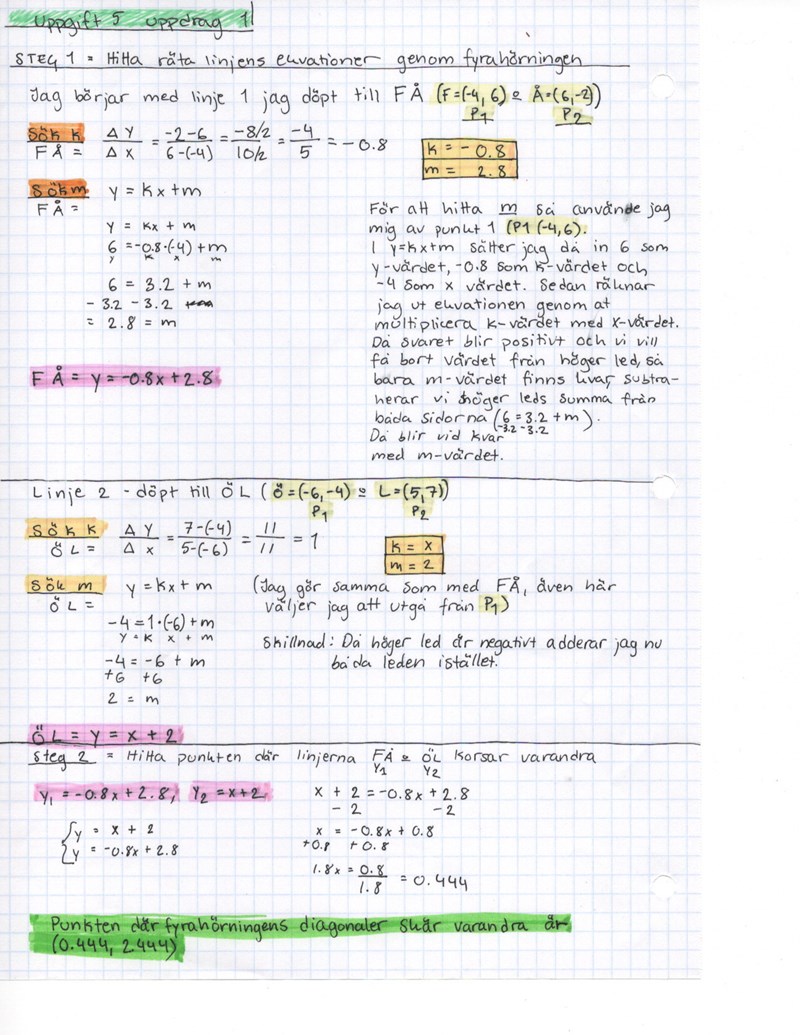 Uppgift 5 uppdrag 1
STEG 1 = Hitta räta linjens ekvationer genom fyrahörningen
Jag börjar med linje 1 jag döpt till FÅ (F=(-4, 6) & Å=(6,-2))
P1 P2
Sök k
FÅ = ΔY/ΔX = -2-6/6-(-4) = -8/2/10/2 = -4/5 = -0.8
k = -0.8
m = 2.8
Sök m
FÅ =
y = kx+m
y = kx + m
6 = -0.8·(-4)+m
y k x m
6 = 3.2 + m
- 3.2 - 3.2
= 2.8 = m
FÅ = y = -0.8x + 2.8
För att hitta m så använde jag
mig av punkt 1 (P1 (-4,6).
I y=kx+m sätter jag då in 6 som
y-värdet, -0.8 som k-värdet och
-4 som x värdet. Sedan räknar
jag ut ekvationen genom at
multiplicera k-värdet med x-värdet.
Då svaret blir positivt och vi vill
få bort värdet från höger led, så
bara m-värdet finns kvar, subtra-
herar vi höger leds summa från
båda sidorna (6 = 3.2 + m).
-3.2 -3.2
Då blir vid kvar
med m-värdet.
Linje 2 - döpt till ÖL (Ö=(-6,-4) & L=(5,7))
P1 P2
Sök k
ÖL = ΔY/ΔX = 7-(-4)/5-(-6) = 11/11 = 1
k = x
m = 2
Sök m
ÖL =
y = kx + m
-4 = 1·(-6)+m
y = k x + m
-4 = -6 + m
+6 +6
2 = m
(Jag gör samma som med FÅ, även här
väljer jag att utgå från P1)
Skillnad: Då höger led är negativt adderar jag nu
båda leden istället.
ÖL = y = x + 2
Steg 2 = Hitta punkten där linjerna FÅ & ÖL korsar varandra
Y1 Y2
y₁ = -0.8x + 2.8, y₂ = x+2
{y = x + 2
{y = -0.8x + 2.8
x + 2 = -0.8x + 2.8
- 2 -2
x = -0.8x + 0.8
+0.8 +0.8
1.8x = 0.8/1.8 = 0.444
Punkten där fyrahörningens diagonaler skär varandra är
(0.444, 2.444)